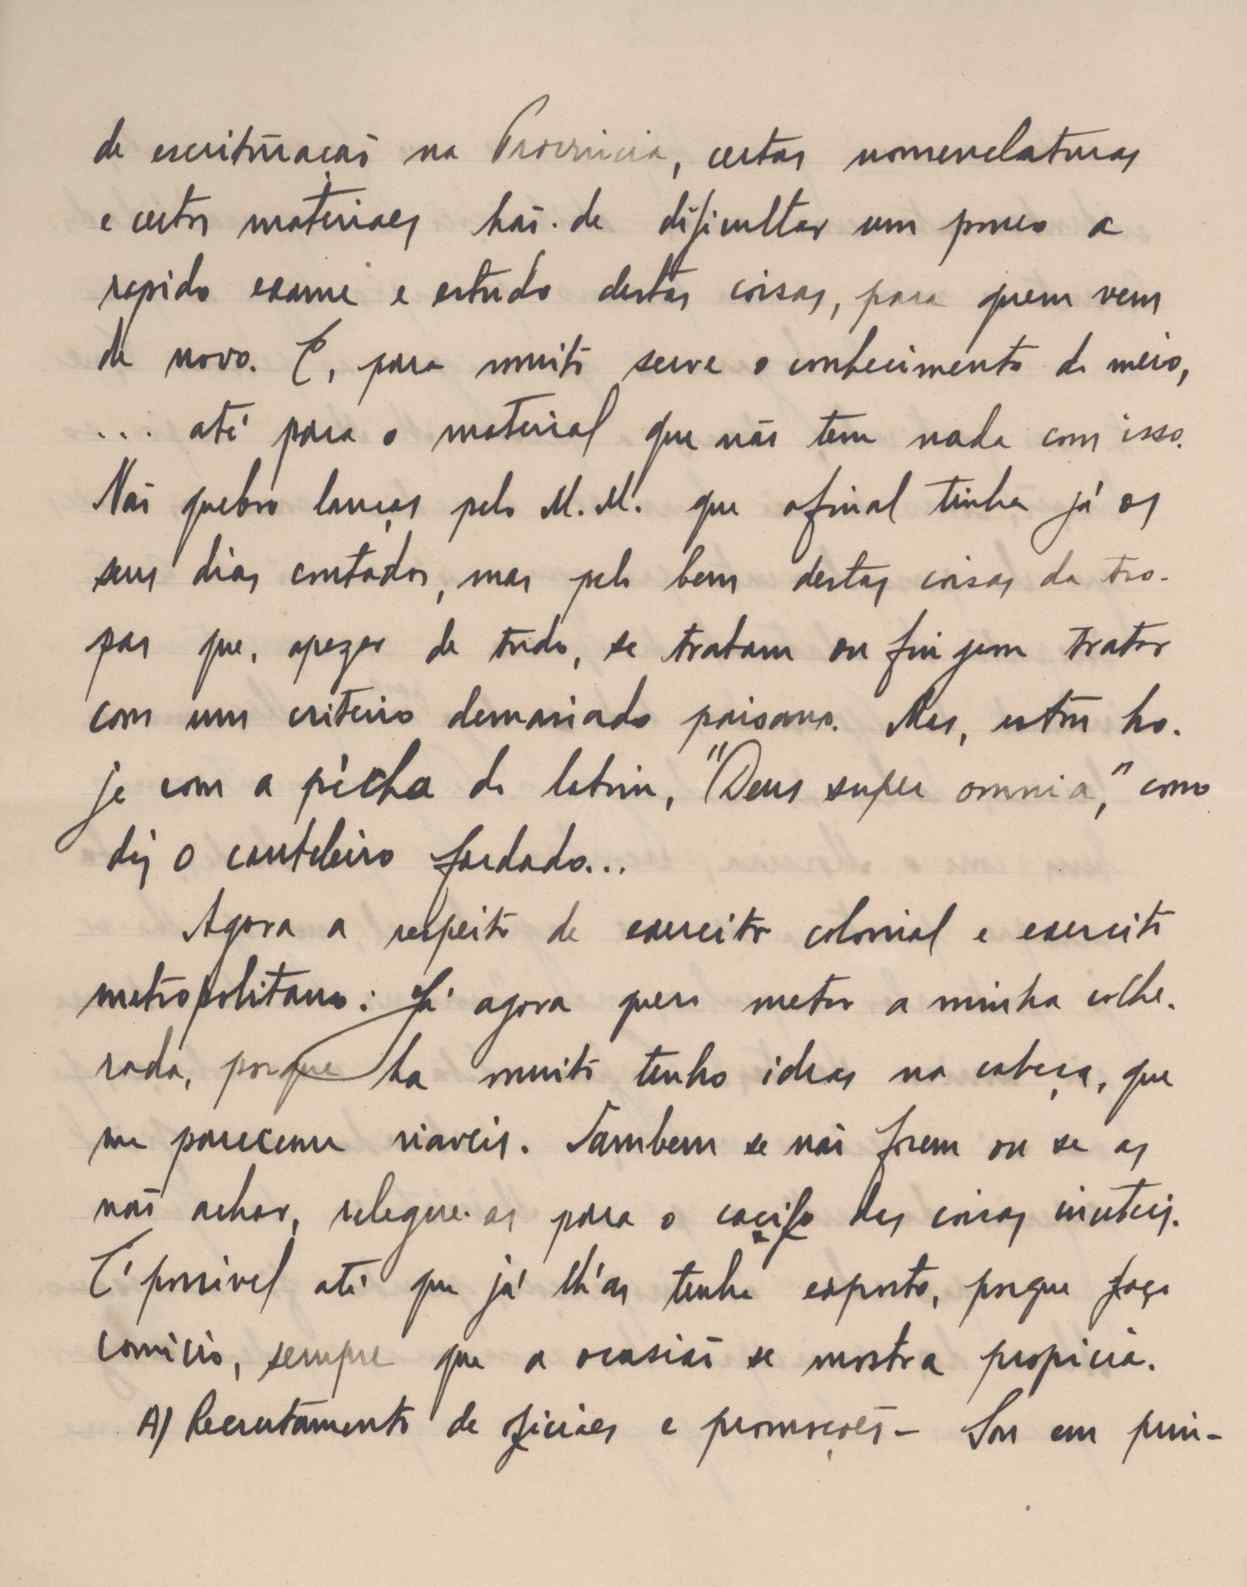 de escrituração na Provincia, certas nomenclaturas
e certos materiaes hão-de dificultar um pouco a
rapido exame e estudo destas coisas, para quem vem
de novo. E, para muito serve o conhecimento do meio,
... até para o material que não tem nada com isso.
Não quebro lanças pelo M. M. que afinal tinha já os
seus dias contados, mas pelo bem destas coisas da tro-
pas que, apezar de tudo, se tratam ou fingem tratar
com um criterio demasiado paisano. Mas, estou ho-
je com a pécha do latim, "Deus super omnia," como
diz o cauteleiro fardado...
Agora a respeito de exercito colonial e exercito
metropolitano: Já agora quero meter a minha colhe-
rada, porque ha muito tenho ideas na cabeça, que
me parecem viaveis. Tambem se não forem ou se as
não achar, relegue-as para o cacifo das coisas inuteis.
É possivel até que já lh'as tenha exposto, porque faço
comicio, sempre que a ocasião se mostra propicia.
A) Recrutamento de oficiaes e promoções - Sou em prin-